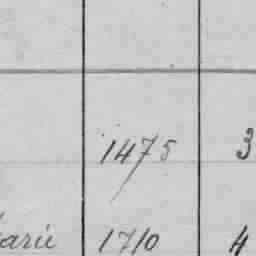 1475 3
arie 1710 4